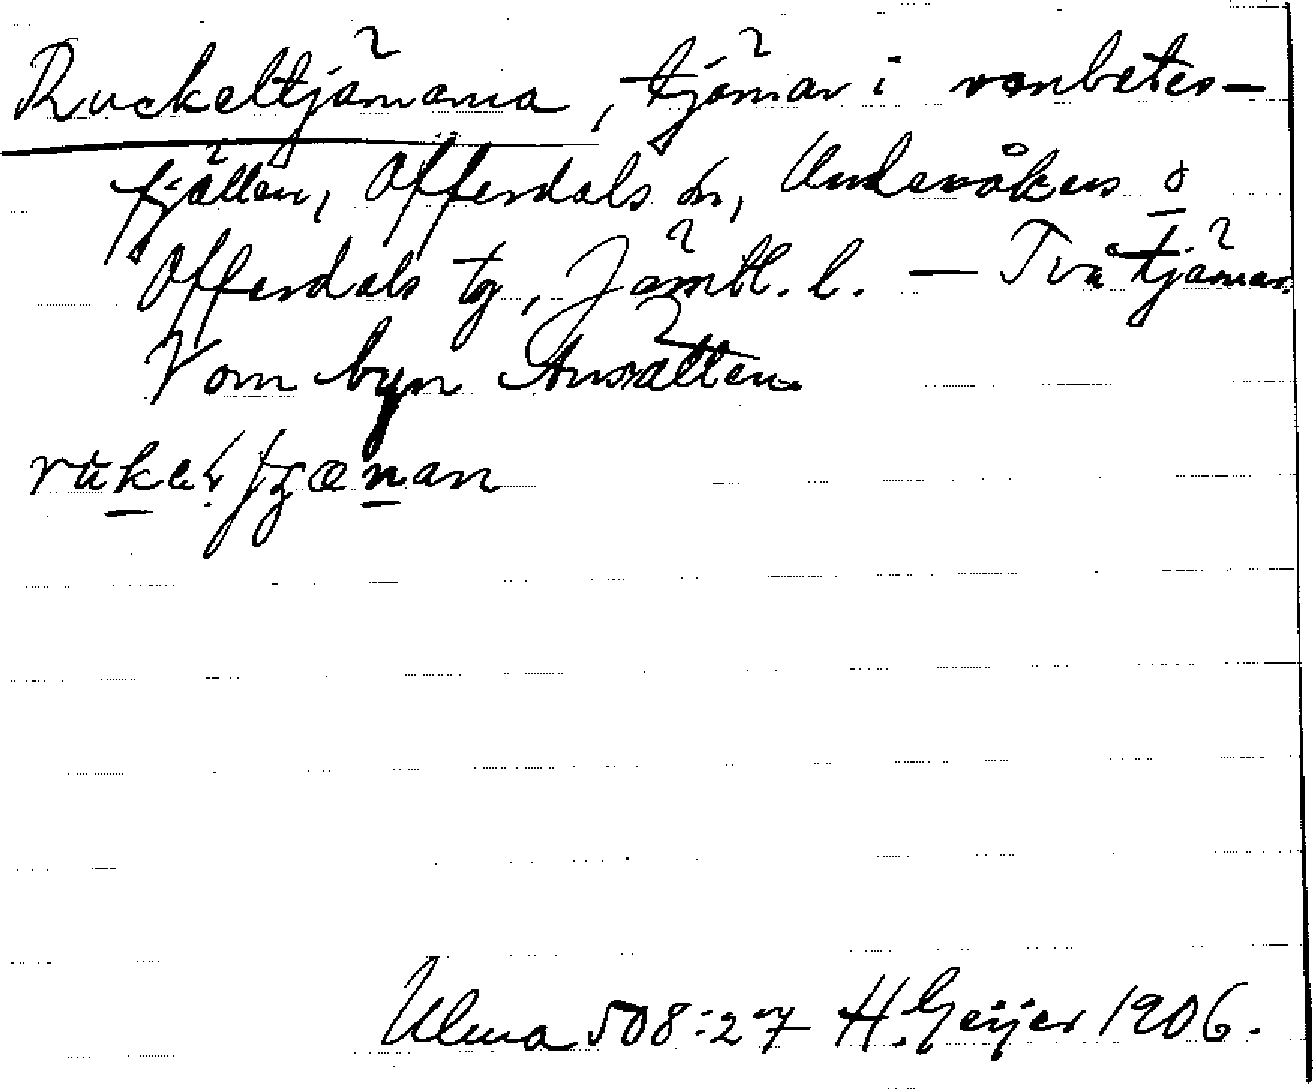 Ruckeltjärnarna, tjärnar i renbetes-
fjällen, Offerdals sn, Undersåkers o
Offerdals tg, Jämtl. l. — Två tjärnar
V om byn Ansätten.
Ulma 508:27 H. Geijer 1906.